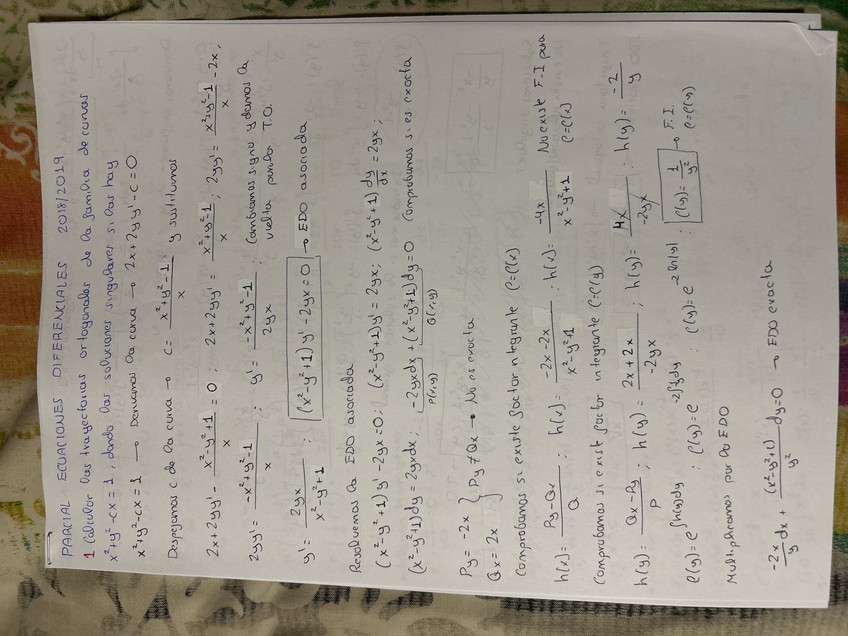 PARCIAL ECUACIONES DIFERENCIALES 2018/2019
1 Calcular las trayectorias ortogonales de la familia de curvas
x²+y²-cx=1, dando las soluciones singulares si las hay
x²+y²-cx=1 → Derivamos la curva → 2x+2yy'-c=0
Despejamos c de la curva → c= (x²+y²-1)/x y sustituimos
2x+2yy'- (x²-y²+1)/x =0; 2x+2yy'= (x²+y²-1)/x ; 2yy'= (x²+y²-1)/x -2x;
2yy'= (-x²+y²-1)/x ; y'= (-x²+y²-1)/2yx ; Cambiamos signo y damos la vuelta para las T.O.
y'= 2yx/(x²-y²+1) ; (x²-y²+1)y'-2yx=0 → EDO asociada
Resolvemos la EDO asociada
(x²-y²+1)y'-2yx=0; (x²-y²+1)y'=2yx; (x²-y²+1) dy/dx =2yx;
(x²-y²+1)dy=2yxdx; -2yxdx+(x²-y²+1)dy=0 Comprobamos si es exacta
P(x,y) Q(x,y)
Py= -2x
Qx= 2x } Py≠Qx → No es exacta
Comprobamos si existe factor integrante ρ=ρ(x)
h(x)= (Py-Qx)/Q ; h(x)= (-2x-2x)/(x²-y²+1) ; h(x)= -4x/(x²-y²+1) No existe F.I para ρ=ρ(x)
Comprobamos si exist factor integrante ρ=ρ(y)
h(y)= (Qx-Py)/P ; h(y)= (2x+2x)/-2yx ; h(y)= 4x/-2yx ; h(y)= -2/y
ρ(y)=e^∫h(y)dy ; ρ(y)=e^-2∫1/y dy ; ρ(y)=e^-2ln(y) ; ρ(y)= 1/y² → F.I. ρ=ρ(y)
Multiplicamos por la EDO
-2x/y dx + (x²-y²+1)/y² dy=0 → EDO exacta